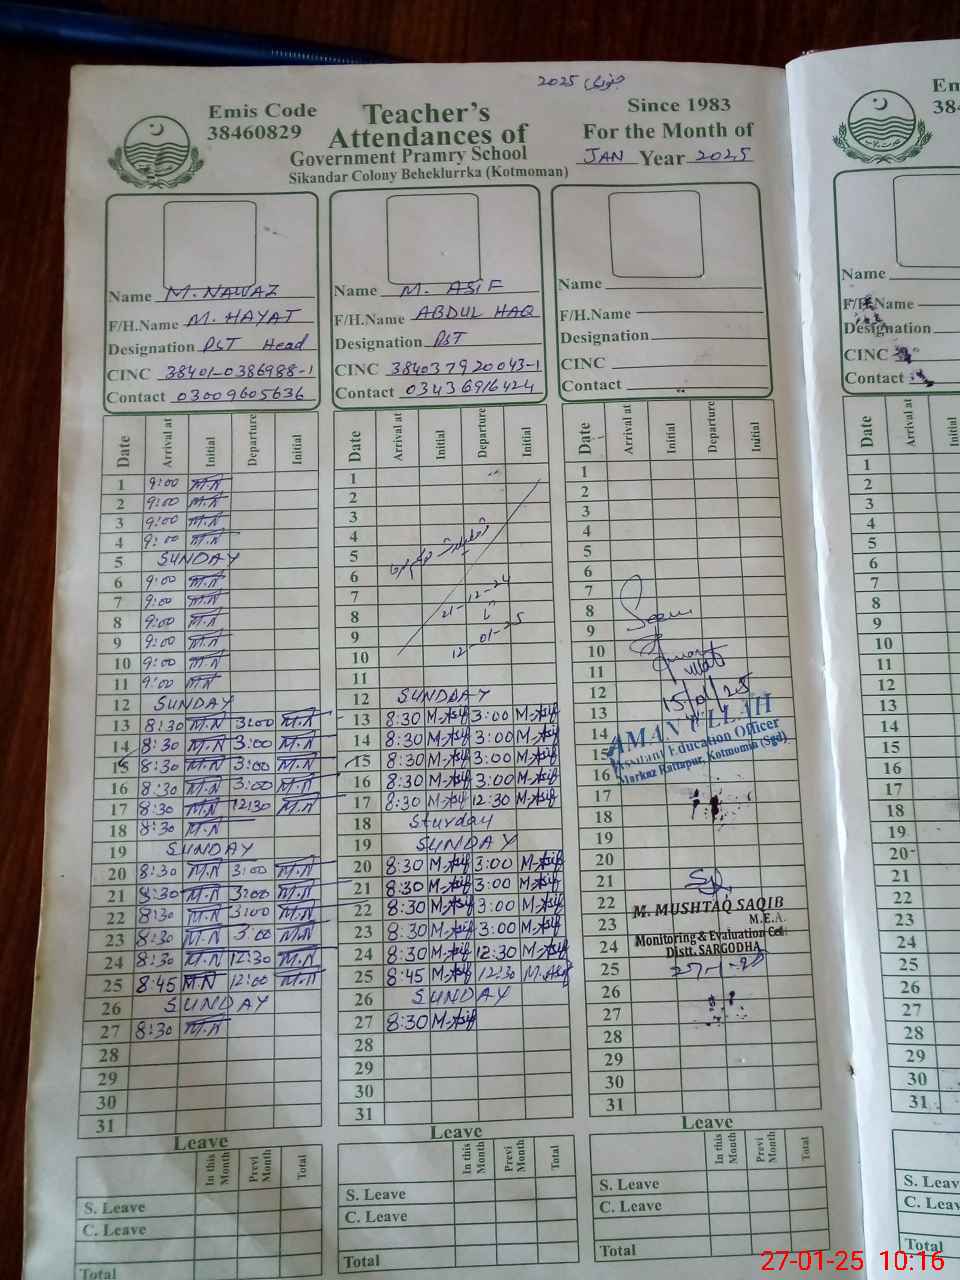 جنوری 2025
Emis Code
38460829
Teacher's
Attendances of
Government Pramry School
Sikandar Colony Beheklurrka (Kotmoman)
Since 1983
For the Month of
JAN Year 2025
Name M. NAWAZ
F/H.Name M. HAYAT
Designation PST Head
CINC 38401-0386988-1
Contact 03009605636
Name M. ASIF
F/H.Name ABDUL HAQ
Designation PST
CINC 384037920043-1
Contact 03436916424
Name
F/H.Name
Designation
CINC
Contact
Date Arrival at Initial Departure Initial
1 9:00 M.N
2 9:00 M.N
3 9:00 M.N
4 9:00 M.N
5 SUNDAY
6 9:00 M.N
7 9:00 M.N
8 9:00 M.N
9 9:00 M.N
10 9:00 M.N
11 9:00 M.N
12 SUNDAY
13 8:30 M.N 3:00 M.N
14 8:30 M.N 3:00 M.N
15 8:30 M.N 3:00 M.N
16 8:30 M.N 3:00 M.N
17 8:30 M.N 12:30 M.N
18 8:30 M.N
19 SUNDAY
20 8:30 M.N 3:00 M.N
21 8:30 M.N 3:00 M.N
22 8:30 M.N 3:00 M.N
23 8:30 M.N 3:00 M.N
24 8:30 M.N 12:30 M.N
25 8:45 M.N 12:00 M.N
26 SUNDAY
27 8:30 M.N
28
29
30
31
Leave
In this Month Previ Month Total
S. Leave
C. Leave
Total
Date Arrival at Initial Departure Initial
1
2
3
4
5
6
7
8
9
10
11
21-12-24
تا
12-01-25
12 SUNDAY
13 8:30 M-Asif 3:00 M-Asif
14 8:30 M-Asif 3:00 M-Asif
15 8:30 M-Asif 3:00 M-Asif
16 8:30 M-Asif 3:00 M-Asif
17 8:30 M-Asif 12:30 M-Asif
18 Sturday
19 SUNDAY
20 8:30 M-Asif 3:00 M-Asif
21 8:30 M-Asif 3:00 M-Asif
22 8:30 M-Asif 3:00 M-Asif
23 8:30 M-Asif 3:00 M-Asif
24 8:30 M-Asif 12:30 M-Asif
25 8:45 M-Asif 12:30 M-Asif
26 SUNDAY
27 8:30 M-Asif
28
29
30
31
Leave
In this Month Previ Month Total
S. Leave
C. Leave
Total
Date Arrival at Initial Departure Initial
1
2
3
4
5
6
7
8
9
10
11
12
13
14
15
16
17
18
19
20
21
22
23
24
25
26
27
28
29
30
31
Seen
15/01/25
AMAN ULLAH
Assistant Education Officer
Markaz Rattapur, Kotmomin (Sgd)
M. MUSHTAQ SAQIB
M.E.A.
Monitoring & Evaluation Cell
Distt. SARGODHA
27-1-25
Leave
In this Month Previ Month Total
S. Leave
C. Leave
Total
Em
384
Name
F/H.Name
Designation
CINC
Contact
Date Arrival at Initial
1
2
3
4
5
6
7
8
9
10
11
12
13
14
15
16
17
18
19
20
21
22
23
24
25
26
27
28
29
30
31
S. Leave
C. Leave
Total
27-01-25 10:16